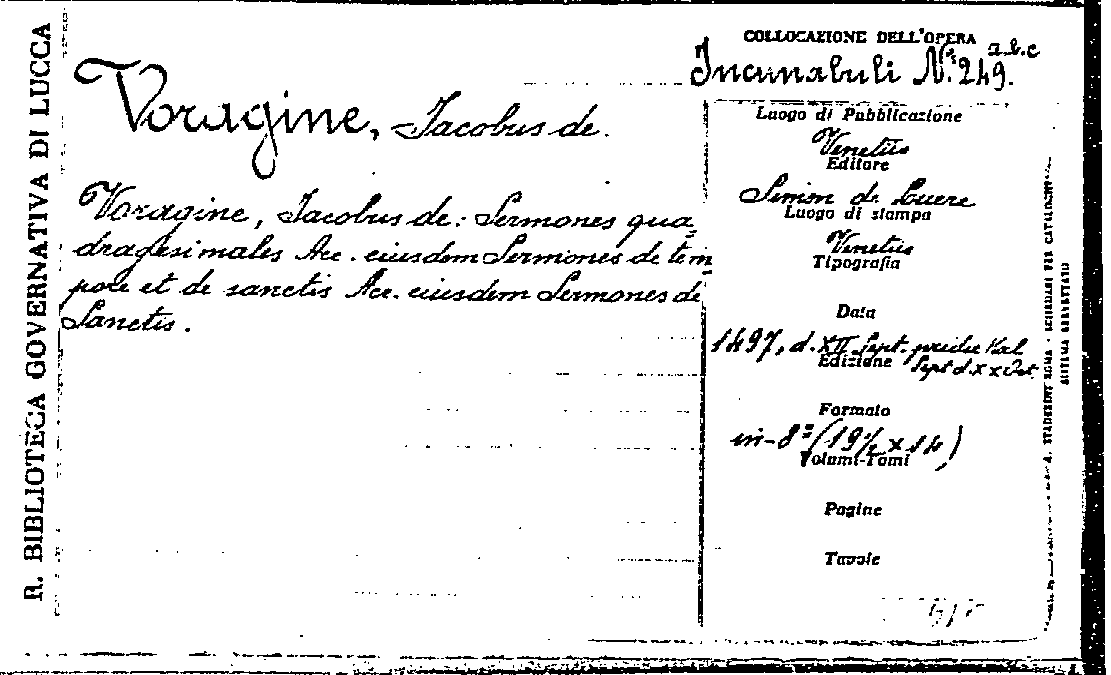 R. BIBLIOTECA GOVERNATIVA DI LUCCA
Voragine, Jacobus de.
Voragine, Jacobus de: Sermones qua-
dragesimales Acc. eiusdem Sermones de tem
pore et de sanctis Acc. eiusdem Sermones de
Sanctis.
COLLOCAZIONE DELL'OPERA
Incunabuli N.° 249. a.b.c
Luogo di Pubblicazione
Venetiis
Editore
Simon de Luere
Luogo di stampa
Venetiis
Tipografia
Data
1497, d. XII Sept. pridie Kal
Sept d. x x Oct.
Edizione
Formato
in-8° (19½ x 14)
Volumi-Tomi
Pagine
Tavole